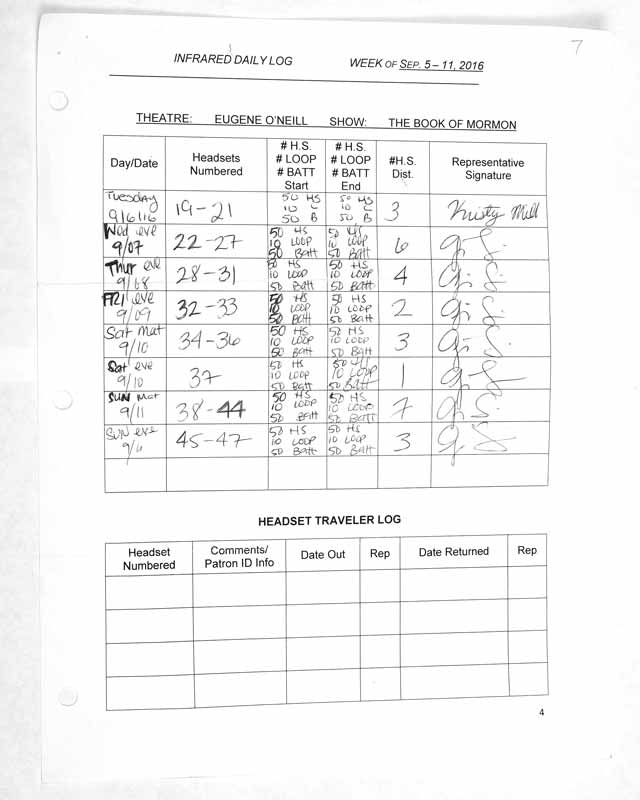 7
INFRARED DAILY LOG WEEK OF SEP. 5 – 11, 2016
THEATRE: EUGENE O'NEILL SHOW: THE BOOK OF MORMON
Day/Date Headsets Numbered # H.S. # LOOP # BATT Start # H.S. # LOOP # BATT End #H.S. Dist. Representative Signature
Tuesday 9/6/16 19-21 50 HS 10 L 50 B 50 HS 10 L 50 B 3 Kristy Mill
Wed eve 9/07 22-27 50 HS 10 LOOP 50 Batt 50 HS 10 LOOP 50 Batt 6
Thur eve 9/08 28-31 50 HS 10 LOOP 50 Batt 50 HS 10 LOOP 50 Batt 4
FRI eve 9/09 32-33 50 HS 10 LOOP 50 Batt 50 HS 10 LOOP 50 Batt 2
Sat mat 9/10 34-36 50 HS 10 LOOP 50 Batt 50 HS 10 LOOP 50 Batt 3
Sat eve 9/10 37 50 HS 10 LOOP 50 Batt 50 HS 10 LOOP 50 Batt 1
SUN mat 9/11 38-44 50 HS 10 LOOP 50 Batt 50 HS 10 LOOP 50 Batt 7
SUN eve 9/11 45-47 50 HS 10 LOOP 50 Batt 50 HS 10 LOOP 50 Batt 3
HEADSET TRAVELER LOG
Headset Numbered Comments/ Patron ID Info Date Out Rep Date Returned Rep
4